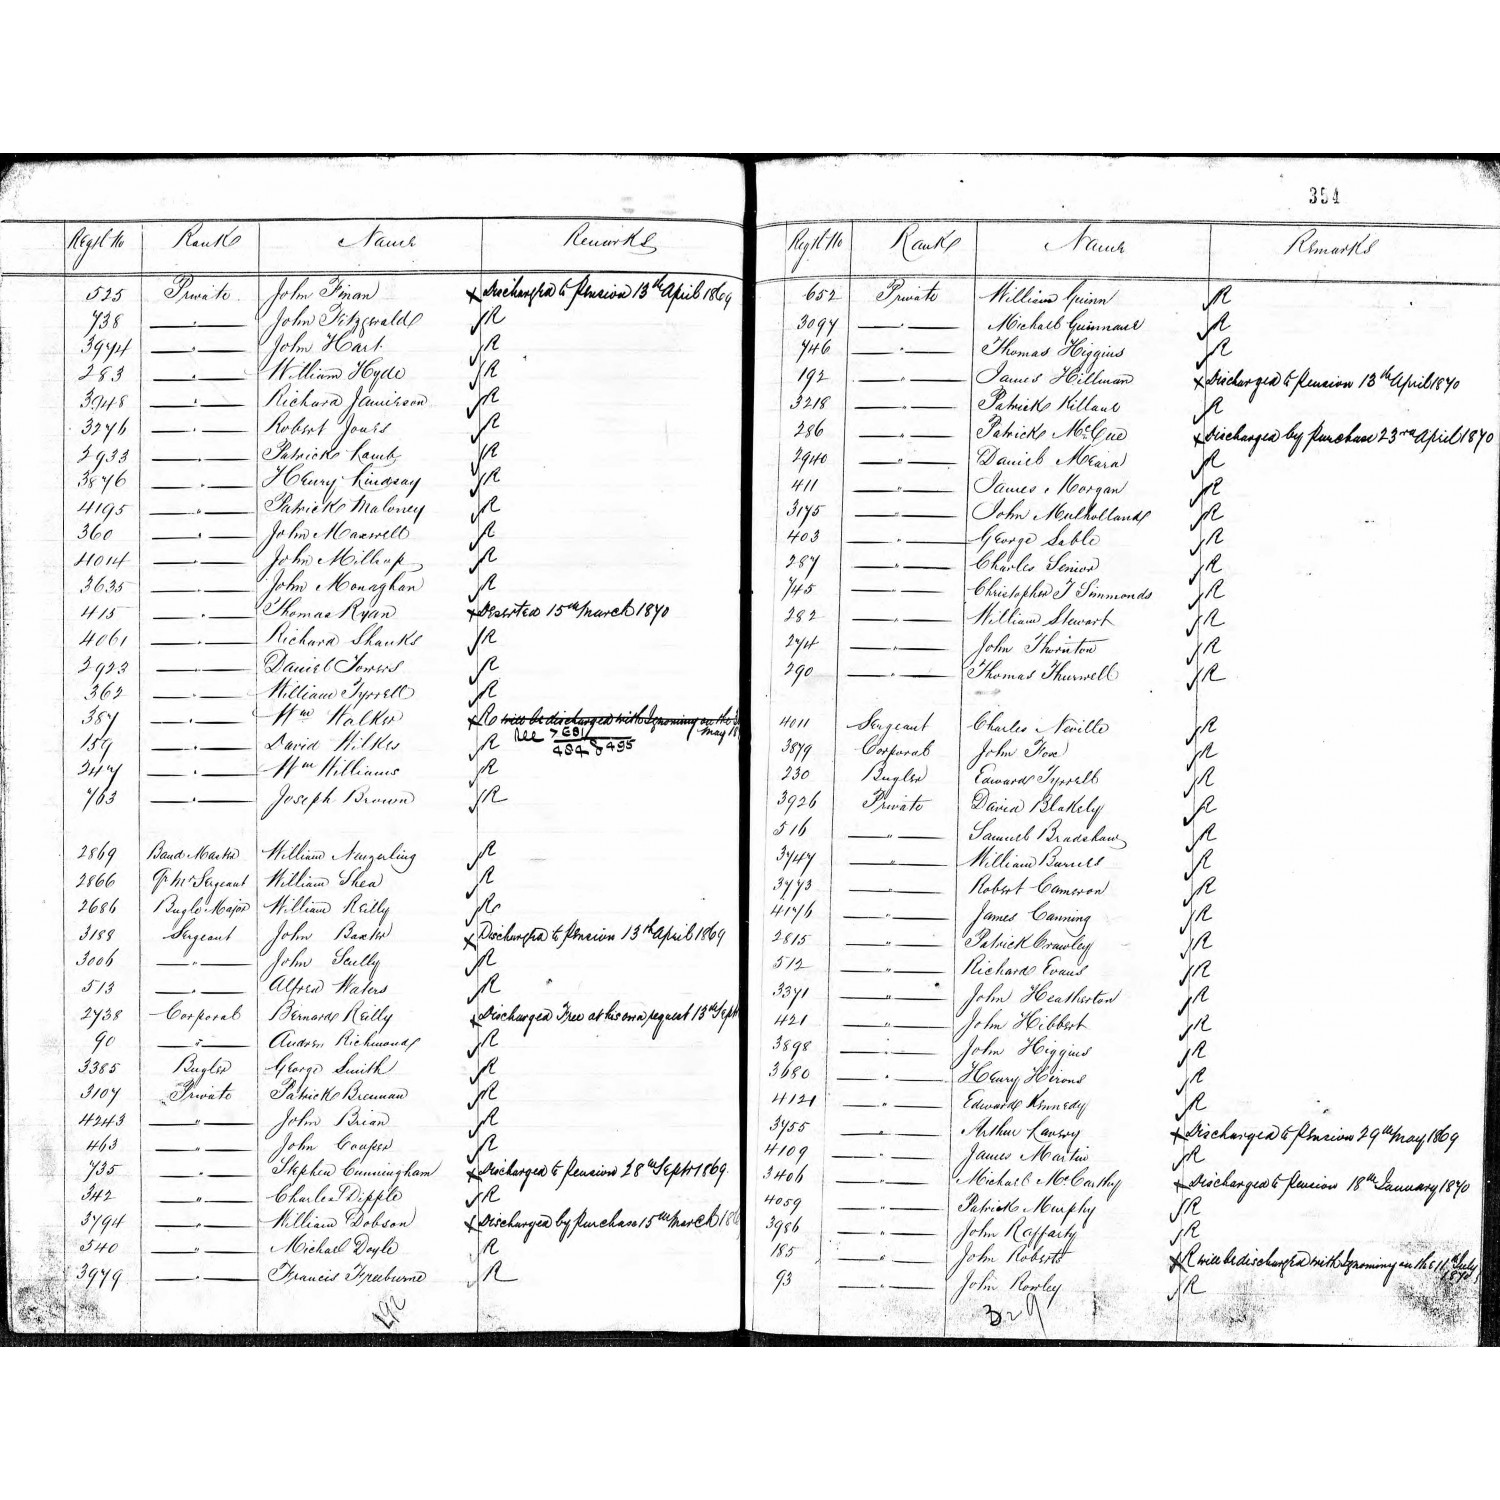 Regtl No Rank Name Remarks
525 Private John Finan x Discharged to Pension 13th April 1869
738 — " — John Fitzgerald R
3974 — " — John Hart R
283 — " — William Hyde R
3948 — " — Richard Jamieson R
3276 — " — Robert Jones R
2933 — " — Patrick Lamb R
3876 — " — Henry Lindsay R
4195 — " — Patrick Maloney R
360 — " — John Maxwell R
4014 — " — John Millrop R
3635 — " — John Monaghan R
415 — " — Thomas Ryan x Deserted 15th March 1870
4061 — " — Richard Shanks R
2923 — " — Daniel Towers R
362 — " — William Tyrrell R
387 — " — Wm Walker x R will be discharged with Ignominy on the
May 18
See > 681/
484 & 495
159 — " — David Wilkes R
247 — " — Wm Williams R
763 — " — Joseph Brown R
2869 Band Master William Newzerling R
2866 Qr Mr Sergeant William Shea R
2686 Bugle Major William Reilly R
3188 Sergeant John Baxter x Discharged to Pension 13th April 1869
3006 — " — John Scully R
513 — " — Alfred Waters R
2738 Corporal Bernard Reilly x Discharged Free at his own request 13th Sept
90 — " — Andrew Richmond R
3385 Bugler George Smith R
3107 Private Patrick Brennan R
4243 — " — John Brian R
463 — " — John Cooper R
735 — " — Stephen Cunningham x Discharged to Pension 28th Septr 1869.
342 — " — Charles Dipple R
3794 — " — William Dobson x Discharged by Purchase 15th March 186
540 — " — Michael Doyle R
3979 — " — Francis Freeburne R
492
354
Regtl No Rank Name Remarks
652 Private William Guinn R
3097 — " — Michael Guinnane R
746 — " — Thomas Higgins R
192 — " — James Hillman x Discharged to Pension 13th April 1870
3218 — " — Patrick Killane R
286 — " — Patrick McCue x Discharged by Purchase 23rd April 1870
2940 — " — Daniel Meara R
411 — " — James Morgan R
3175 — " — John Mulholland R
403 — " — George Sable R
287 — " — Charles Senior R
745 — " — Christopher T Simmonds R
282 — " — William Stewart R
274 — " — John Thornton R
290 — " — Thomas Thurwell R
4011 Sergeant Charles Neville R
3879 Corporal John Fox R
230 Bugler Edward Tyrrell R
3926 Private David Blakely R
516 — " — Samuel Bradshaw R
3747 — " — William Burrell R
3773 — " — Robert Cameron R
4176 — " — James Canning R
2815 — " — Patrick Crawley R
512 — " — Richard Evans R
3371 — " — John Heatherton R
421 — " — John Hibbert R
3898 — " — John Higgins R
3680 — " — Henry Hirons R
4121 — " — Edward Kennedy R
3755 — " — Arthur Lavery x Discharged to Pension 29th May 1869
4109 — " — James Martin R
3406 — " — Michael McCarthy x Discharged to Pension 18th January 1870
4059 — " — Patrick Murphy R
3986 — " — John Rafferty R
185 — " — John Roberts x R will be discharged with Ignominy on the 11th July
1870
93 — " — John Rowley R
329